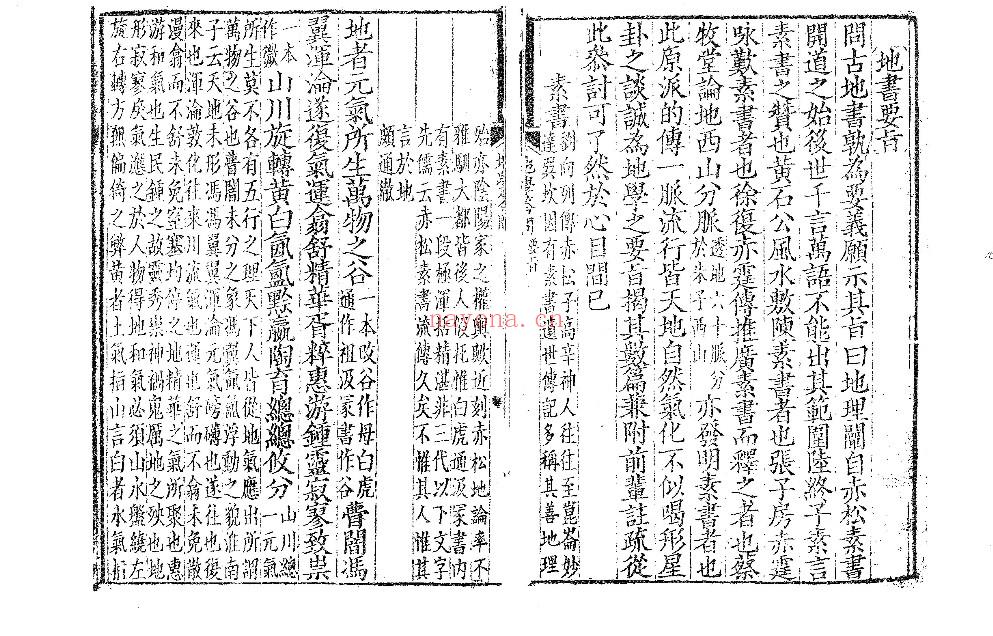 地書要旨
問古地書孰為要義願示其旨曰地理闢自赤松素書
開道之始後世千言萬語不能出其範圍陸終子素言
素書之贊也黃石公風水敷陳素書者也張子房赤霆
咏歎素書者也徐復亦霆傳推廣素書而釋之者也蔡
牧堂論地西山分脈透地六十脈分於朱子西山亦發明素書者也
此原派的傳一脈流行皆天地自然氣化不似喝形星
卦之談誠為地學之要旨揭其數篇兼附前輩註疏從
此叅討可了然於心目間已
素書劉向列傳赤松子高辛神人往往至崑崙妙
達要坎因有素書遺世傳記多稱其善地理
殆亦陰陽家之權輿歟近刻赤松地論率不
雅馴大都皆後人假托惟白虎通汲冢書內
有素書一段極渾括精湛非三代以下文字
先儒云赤松素書流傳久矣不惟其人惟其
言於地
頗通徹
地者元氣所生萬物之谷一本改谷作母白虎通作祖汲冢書作谷瞢闇馮
翼渾淪遂復氣運翕舒精華胥粹惠游鍾靈寂寥致祟
一本作徽山川旋轉黃白氤氳黙嬴陶育總總攸分山川總一元氣
所生莫不各有五行之理天下人皆從地氣應出所謂
萬物之谷也瞢闇未分之象馮翼氤氳浮動之貌淮南
子云天地未形馮馮翼翼渾淪元氣磅礴也遂往也復
來也渾淪敦化往來川流氣運也舒而不翕未免散
漫翕而不舒未免窒塞均停之地精華之氣所聚也惠
游和氣也生民鍾之故靈秀崇神禍鬼厲地之殃也地
形寂寥戾氣應之於人物得地和氣必須山水盤繞左
旋右轉方無偏倚之弊黃者土氣指山言白者水氣指
nayona.cn